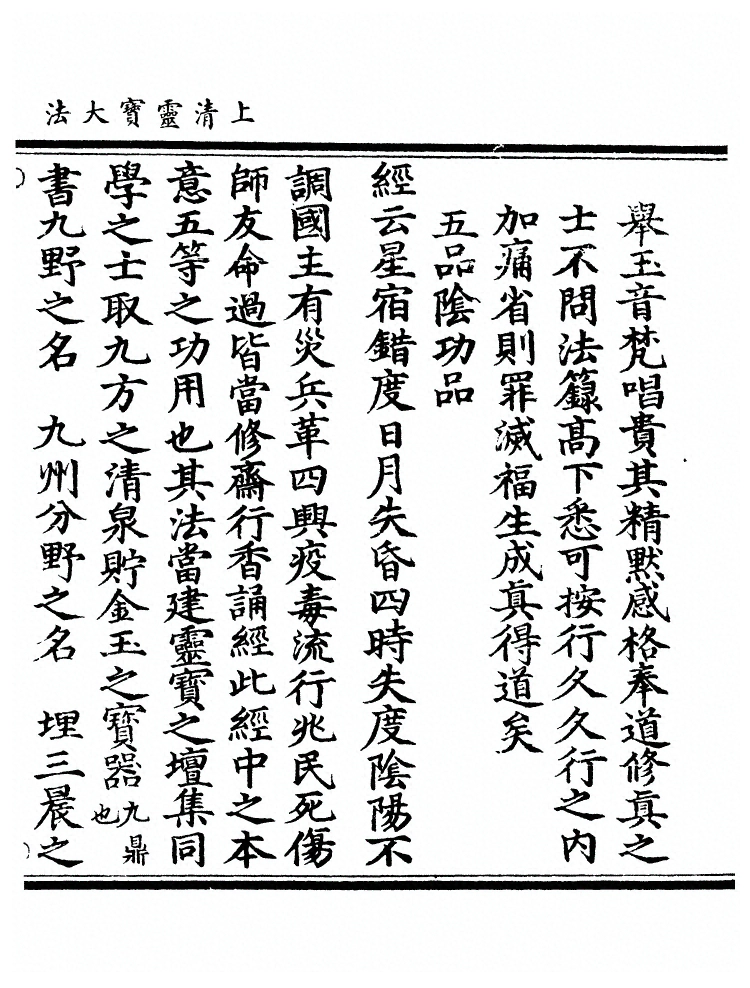 上清靈寶大法
舉玉音梵唱貴其精默感格奉道修真之
士不問法籙高下悉可按行久久行之内
加痛省則罪滅福生成真得道矣
五品陰功品
經云星宿錯度日月失昏四時失度陰陽不
調國主有災兵革四興疫毒流行兆民死傷
師友命過皆當修齋行香誦經此經中之本
意五等之功用也其法當建靈寶之壇集同
學之士取九方之清泉貯金玉之寶器九鼎也
書九野之名　九州分野之名　埋三晨之